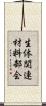 生体関連
材料部会